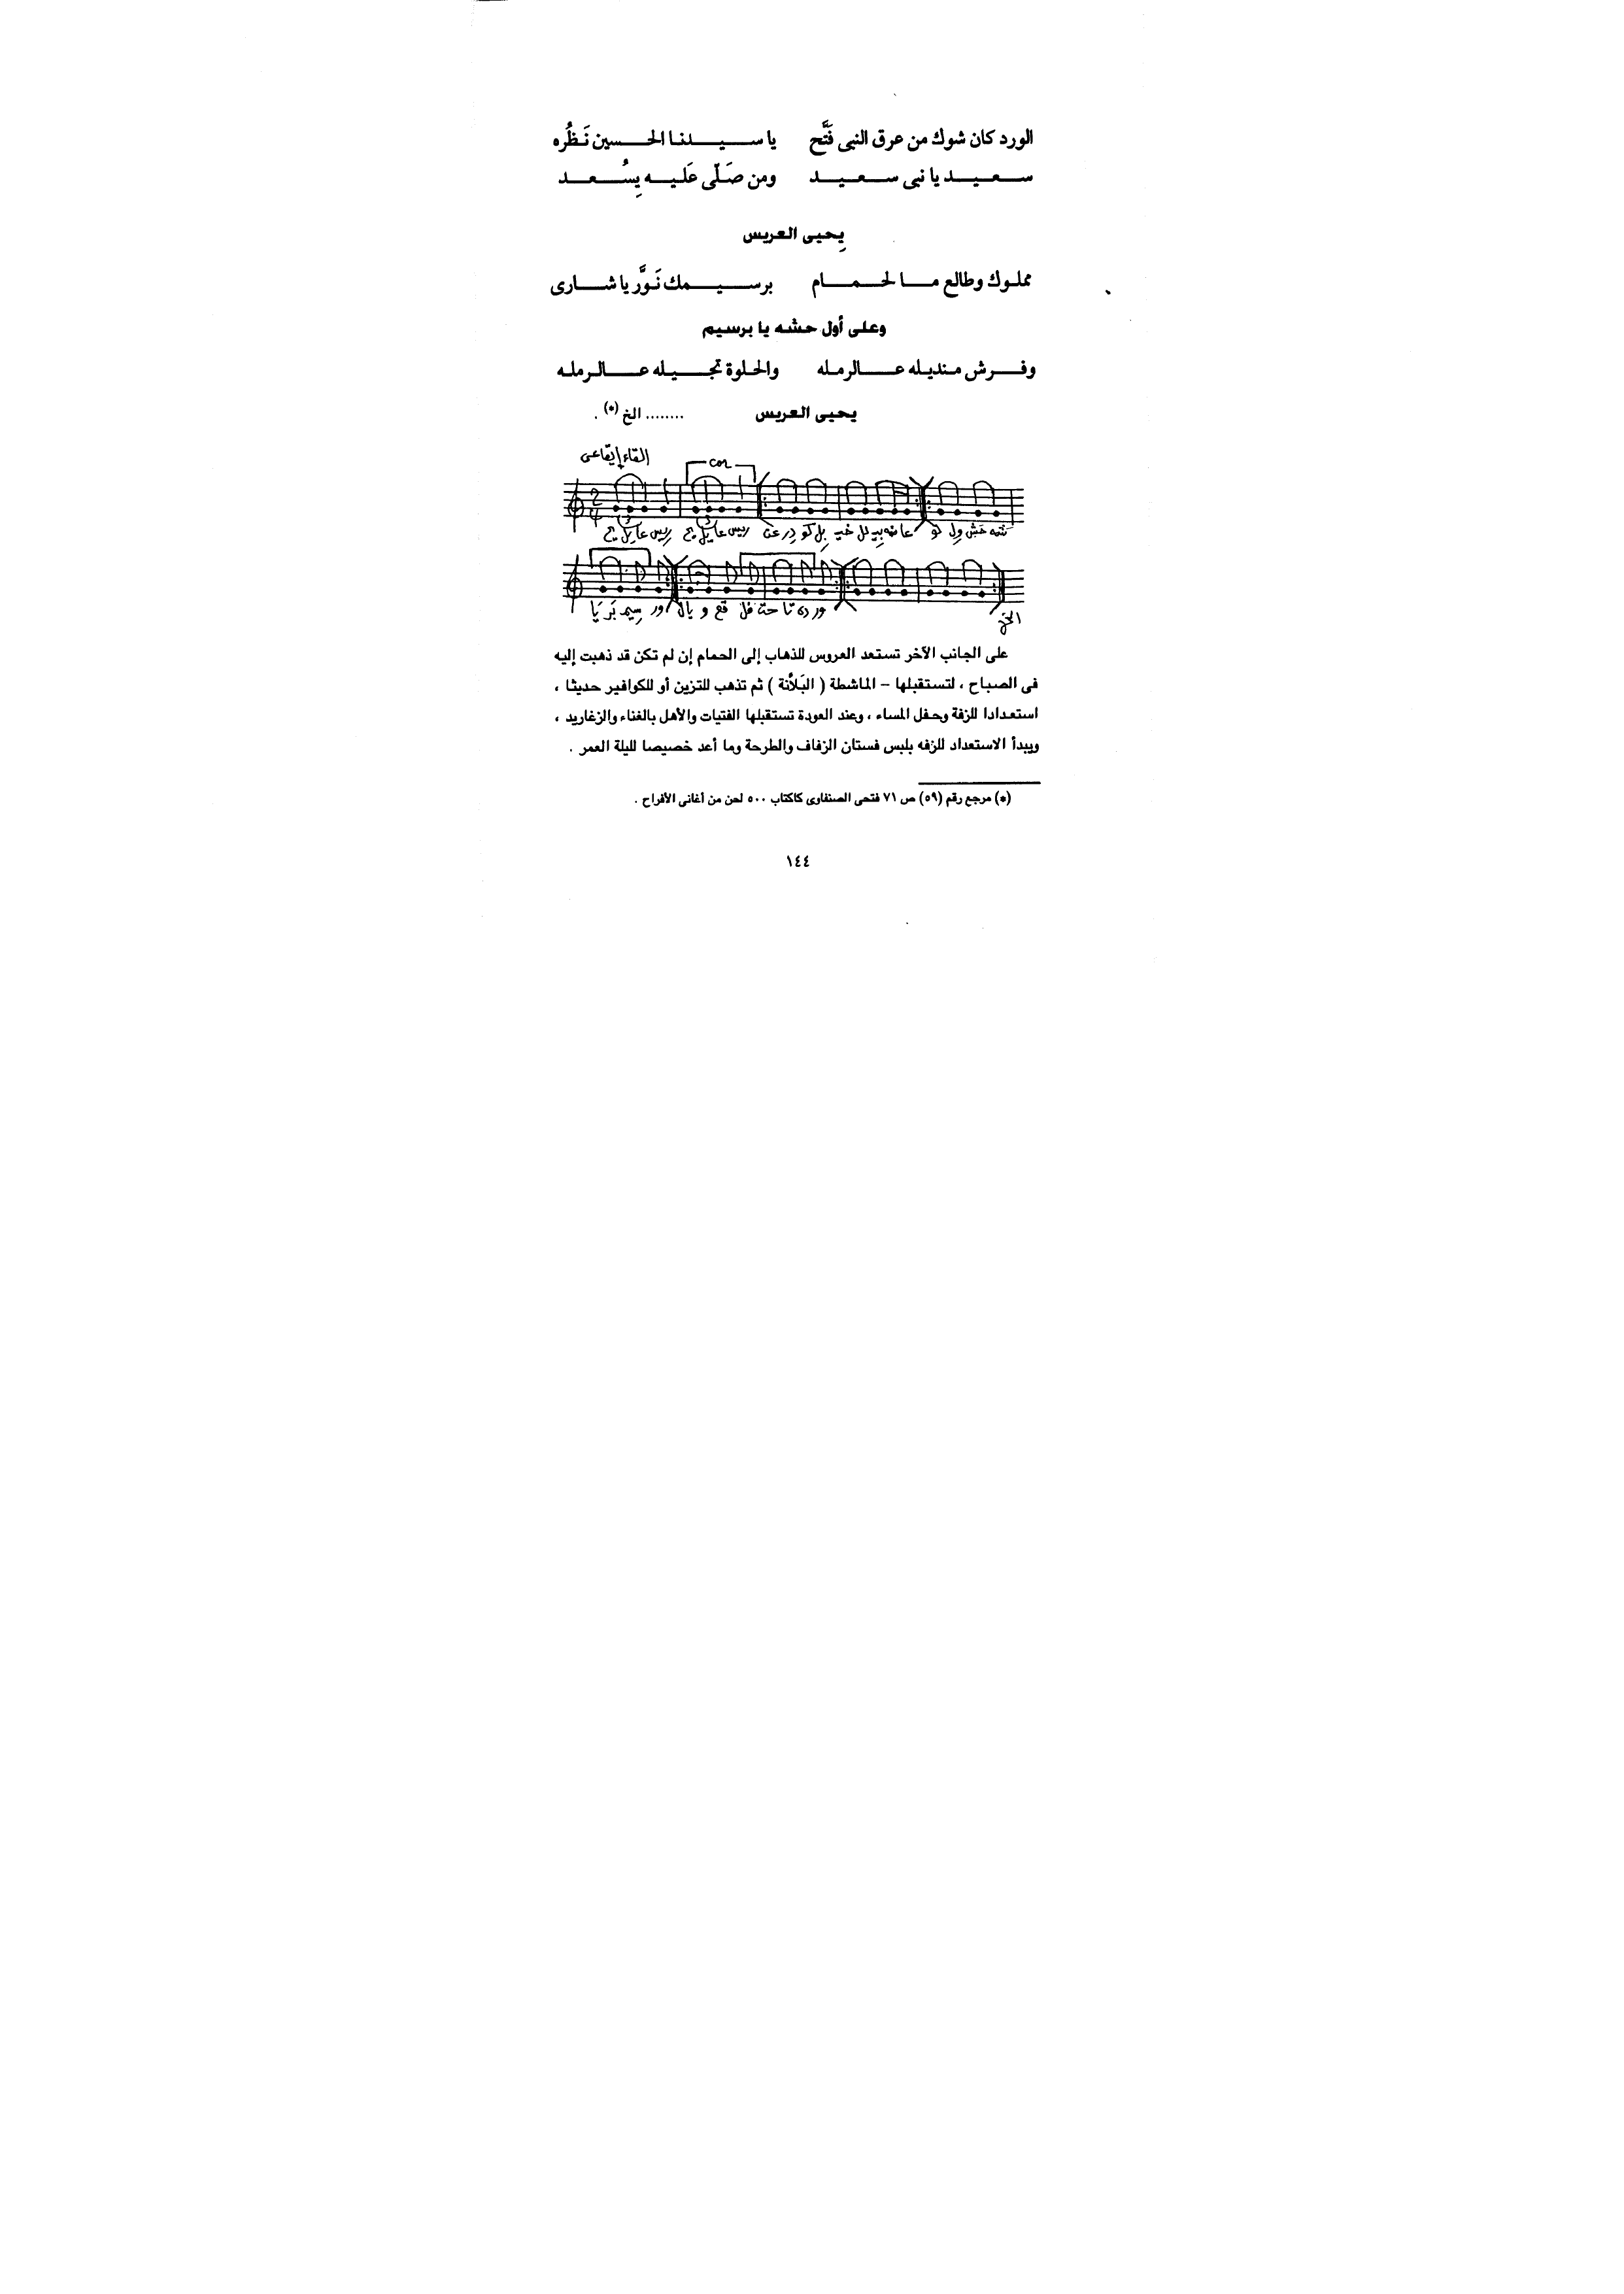 الورد كان شوك من عرق النبى فَتَّح يا سيدنا الحسين نَظُره
سعيد يا نبى سعيد ومن صَلّى عَليه يِسُعد
يِحيى العريس
مملوك وطالع ما لحمام برسيمك نَوَّر يا شارى
وعلى أول حشه يا برسيم
وفرش منديله عالرمله والحلوة تجيله عالرمله
يحيى العريس ........ الخ (*) .
إلقاء إيقاعى
على الجانب الآخر تستعد العروس للذهاب إلى الحمام إن لم تكن قد ذهبت إليه
فى الصباح ، لتستقبلها – الماشطة ( البَلأَنة ) ثم تذهب للتزين أو للكوافير حديثا ،
استعدادا للزفة وحفل المساء ، وعند العودة تستقبلها الفتيات والأهل بالغناء والزغاريد ،
ويبدأ الاستعداد للزفه بلبس فستان الزفاف والطرحة وما أعد خصيصا لليلة العمر .
(*) مرجع رقم (٥٩) ص ٧١ فتحى الصنفاوى كاكتاب ٥٠٠ لحن من أغانى الأفراح .
١٤٤